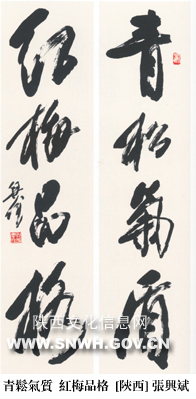 青松氣质
红梅品格
陕西文化信息网
WWW.SNWH.GOV.CN
青鬆氣質 紅梅品格 [陝西] 張興斌